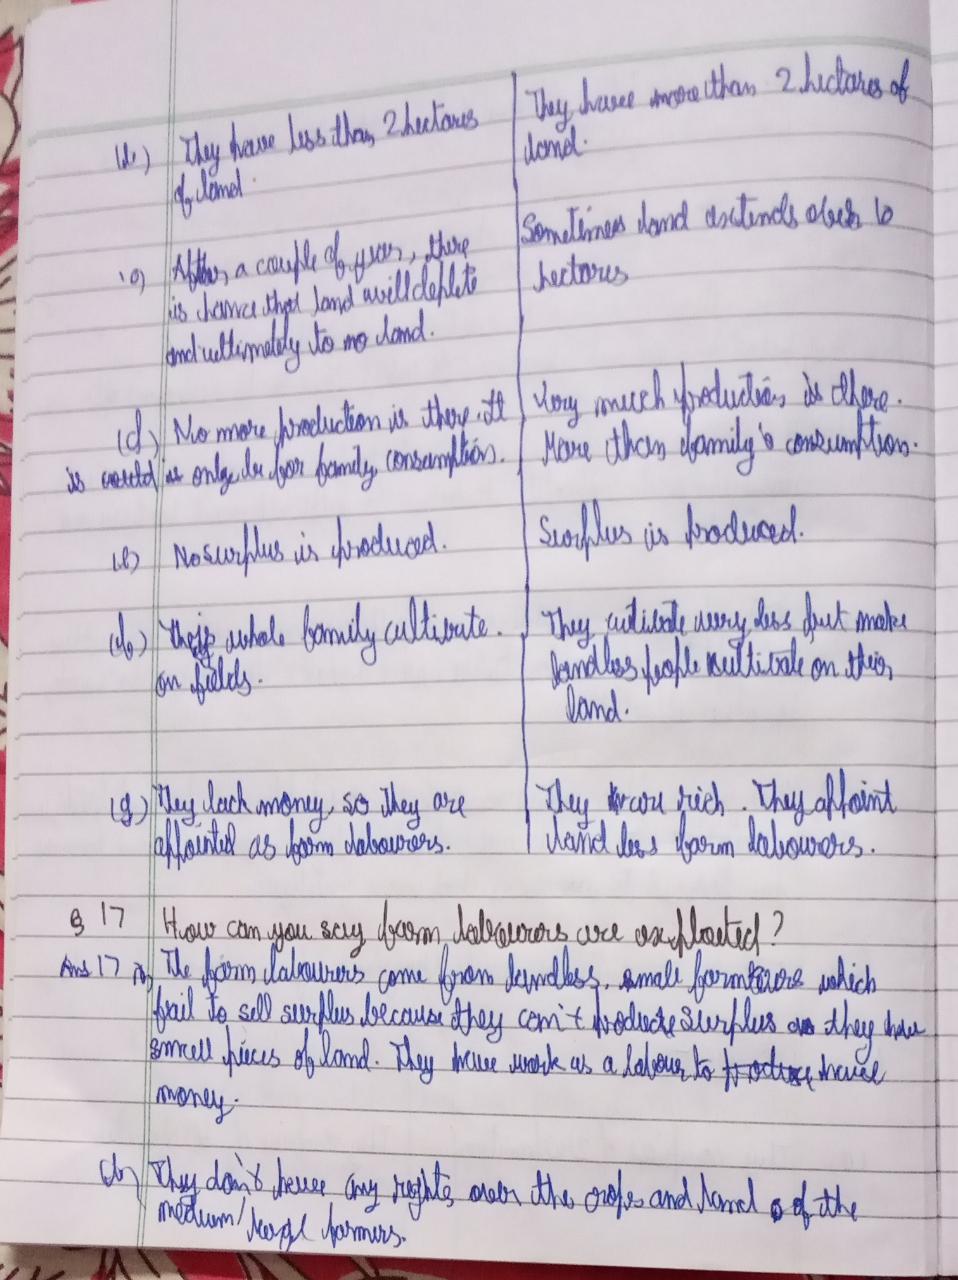 (b) They have less than 2 hectares
of land.
They have more than 2 hectares of
land.
(c) After, a couple of years, there
is chance that land will deplete
and ultimately to no land.
Sometimes land extends 10
hectares
(d) No more production is there. It
is only be for family consumption.
Very much production is there.
More than family's consumption.
(e) No surplus is produced.
Surplus is produced.
whole family cultivate.
on fields.
They cultivate very less but make
landless people cultivate on their
land.
(g) They lack money, so they are
appointed as farm labourers.
They are rich. They appoint
land less farm labourers.
Q 17 How can you say farm labourers are exploited?
Ans 17 a) The farm labourers come from landless, small farmers which
fail to sell surplus because they can't produce surplus as they have
small pieces of land. They have work as a labour to have
money.
(b) They don't have any rights over the crops and land of the
medium/ large farmers.